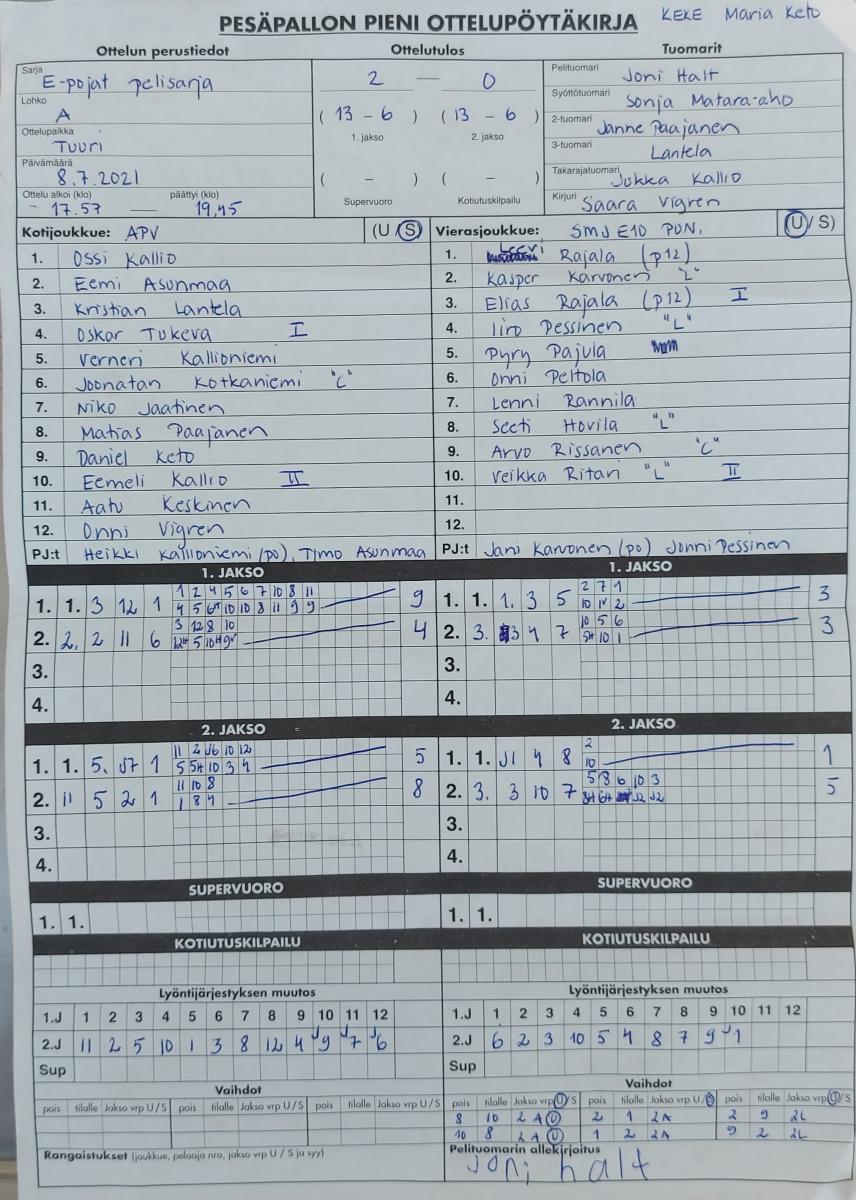 PESÄPALLON PIENI OTTELUPÖYTÄKIRJA KEKE Maria Keto
Ottelun perustiedot Ottelutulos Tuomarit
Sarja E-pojat pelisarja
Lohko A
Ottelupaikka Tuuri
Päivämäärä 8.7.2021
Ottelu alkoi (klo) päättyi (klo)
17.57 — 19,45
2 — 0
( 13 – 6 ) ( 13 – 6 )
1. jakso 2. jakso
( – ) ( – )
Supervuoro Kotiutuskilpailu
Pelituomari Joni Halt
Syöttötuomari Sonja Matara-aho
2-tuomari Janne Paajanen
3-tuomari Lantela
Takarajatuomari Jukka Kallio
Kirjuri Saara Vigren
Kotijoukkue: APV (U/S)
1. Ossi Kallio
2. Eemi Asunmaa
3. Kristian Lantela
4. Oskar Tukeva I
5. Verneri Kallioniemi
6. Joonatan Kotkaniemi "C"
7. Niko Jaatinen
8. Matias Paajanen
9. Daniel Keto
10. Eemeli Kallio II
11. Aatu Keskinen
12. Onni Vigren
PJ:t Heikki Kallioniemi (po), Timo Asunmaa
Vierasjoukkue: SMJ E10 PUN. (U/S)
1. Leevi Rajala (p12)
2. Kasper Karvonen "L"
3. Elias Rajala (p12) I
4. Iiro Pessinen "L"
5. Pyry Pajula
6. Onni Peltola
7. Lenni Rannila
8. Seeti Hovila "L"
9. Arvo Rissanen "C"
10. Veikka Ritari "L" II
11.
12.
PJ:t Jani Karvonen (po) Jonni Pessinen
1. JAKSO
1 2 4 5 6 7 10 8 11
1. 1. 3 12 1 9
3 12 8 10
2. 2, 2 11 6 4
3.
4.
1. JAKSO
2 7 1
1. 1. 1. 3 5 3
10 5 6
2. 3. 3 4 7 3
3.
4.
2. JAKSO
11 2 J6 10 12
1. 1. 5. J7 1 5
5 5H 10 3 4
11 10 8
2. 11 5 2 1 8
1 8 4
3.
4.
2. JAKSO
2
1. 1. J1 4 8 1
10
5 8 6 10 3
2. 3. 3 10 7 5
3.
4.
SUPERVUORO
1. 1.
SUPERVUORO
1. 1.
KOTIUTUSKILPAILU
KOTIUTUSKILPAILU
Lyöntijärjestyksen muutos
1.J 1 2 3 4 5 6 7 8 9 10 11 12
2.J 11 2 5 10 1 3 8 12 4 J9 J7 J6
Sup
Lyöntijärjestyksen muutos
1.J 1 2 3 4 5 6 7 8 9 10 11 12
2.J 6 2 3 10 5 4 8 7 9 J1
Sup
Vaihdot
pois tilalle Jakso vrp U / S pois tilalle Jakso vrp U / S pois tilalle Jakso vrp U / S
Vaihdot
pois tilalle Jakso vrp U/S pois tilalle Jakso vrp U/S pois tilalle Jakso vrp U/S
8 10 2A U 2 1 2A 2 9 2L
10 8 2A U 1 2 2A 9 2 2L
Rangaistukset (joukkue, pelaaja nro, jakso vrp U / S ja syy)
Pelituomarin allekirjoitus
Joni halt